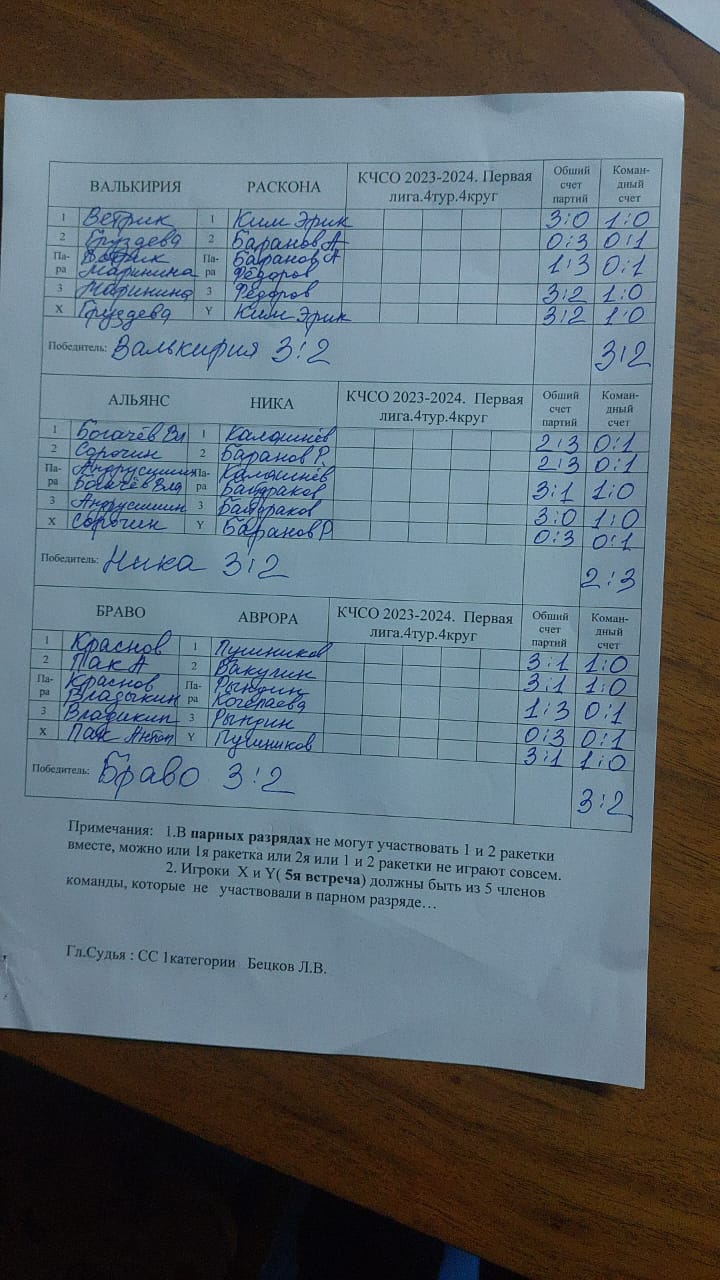 ВАЛЬКИРИЯ РАСКОНА КЧСО 2023-2024. Первая лига.4тур.4круг Общий счет партий Коман-дный счет
1 Ветрик 1 Ким Эрик 3:0 1:0
2 Груздева 2 Баранов А 0:3 0:1
Па-ра Ветрик Па-ра Баранов А 1:3 0:1
Маринина Фёдоров
3 Маринина 3 Фёдоров 3:2 1:0
X Груздева Y Ким Эрик 3:2 1:0
Победитель: Валькирия 3:2 3:2
АЛЬЯНС НИКА КЧСО 2023-2024. Первая лига.4тур.4круг Общий счет партий Коман-дный счет
1 Богачёв Вл 1 2:3 0:1
2 Сорочин 2 Баранов Р 2:3 0:1
Па-ра Па-ра 3:1 1:0
Богачёв Вла
3 3 3:0 1:0
X Сорочин Y Баранов Р 0:3 0:1
Победитель: Ника 3:2 2:3
БРАВО АВРОРА КЧСО 2023-2024. Первая лига.4тур.4круг Общий счет партий Коман-дный счет
1 Краснов 1 Пушников 3:1 1:0
2 Пак А 2 Вакулин 3:1 1:0
Па-ра Краснов Па-ра Рындин 1:3 0:1
Владыкин
3 Владыкин 3 Рындин 0:3 0:1
X Пак Y Пушников 3:1 1:0
Победитель: Браво 3:2 3:2
Примечания: 1.В парных разрядах не могут участвовать 1 и 2 ракетки
вместе, можно или 1я ракетка или 2я или 1 и 2 ракетки не играют совсем.
2. Игроки X и Y( 5я встреча) должны быть из 5 членов
команды, которые не участвовали в парном разряде…
Гл.Судья : СС 1категории Бецков Л.В.